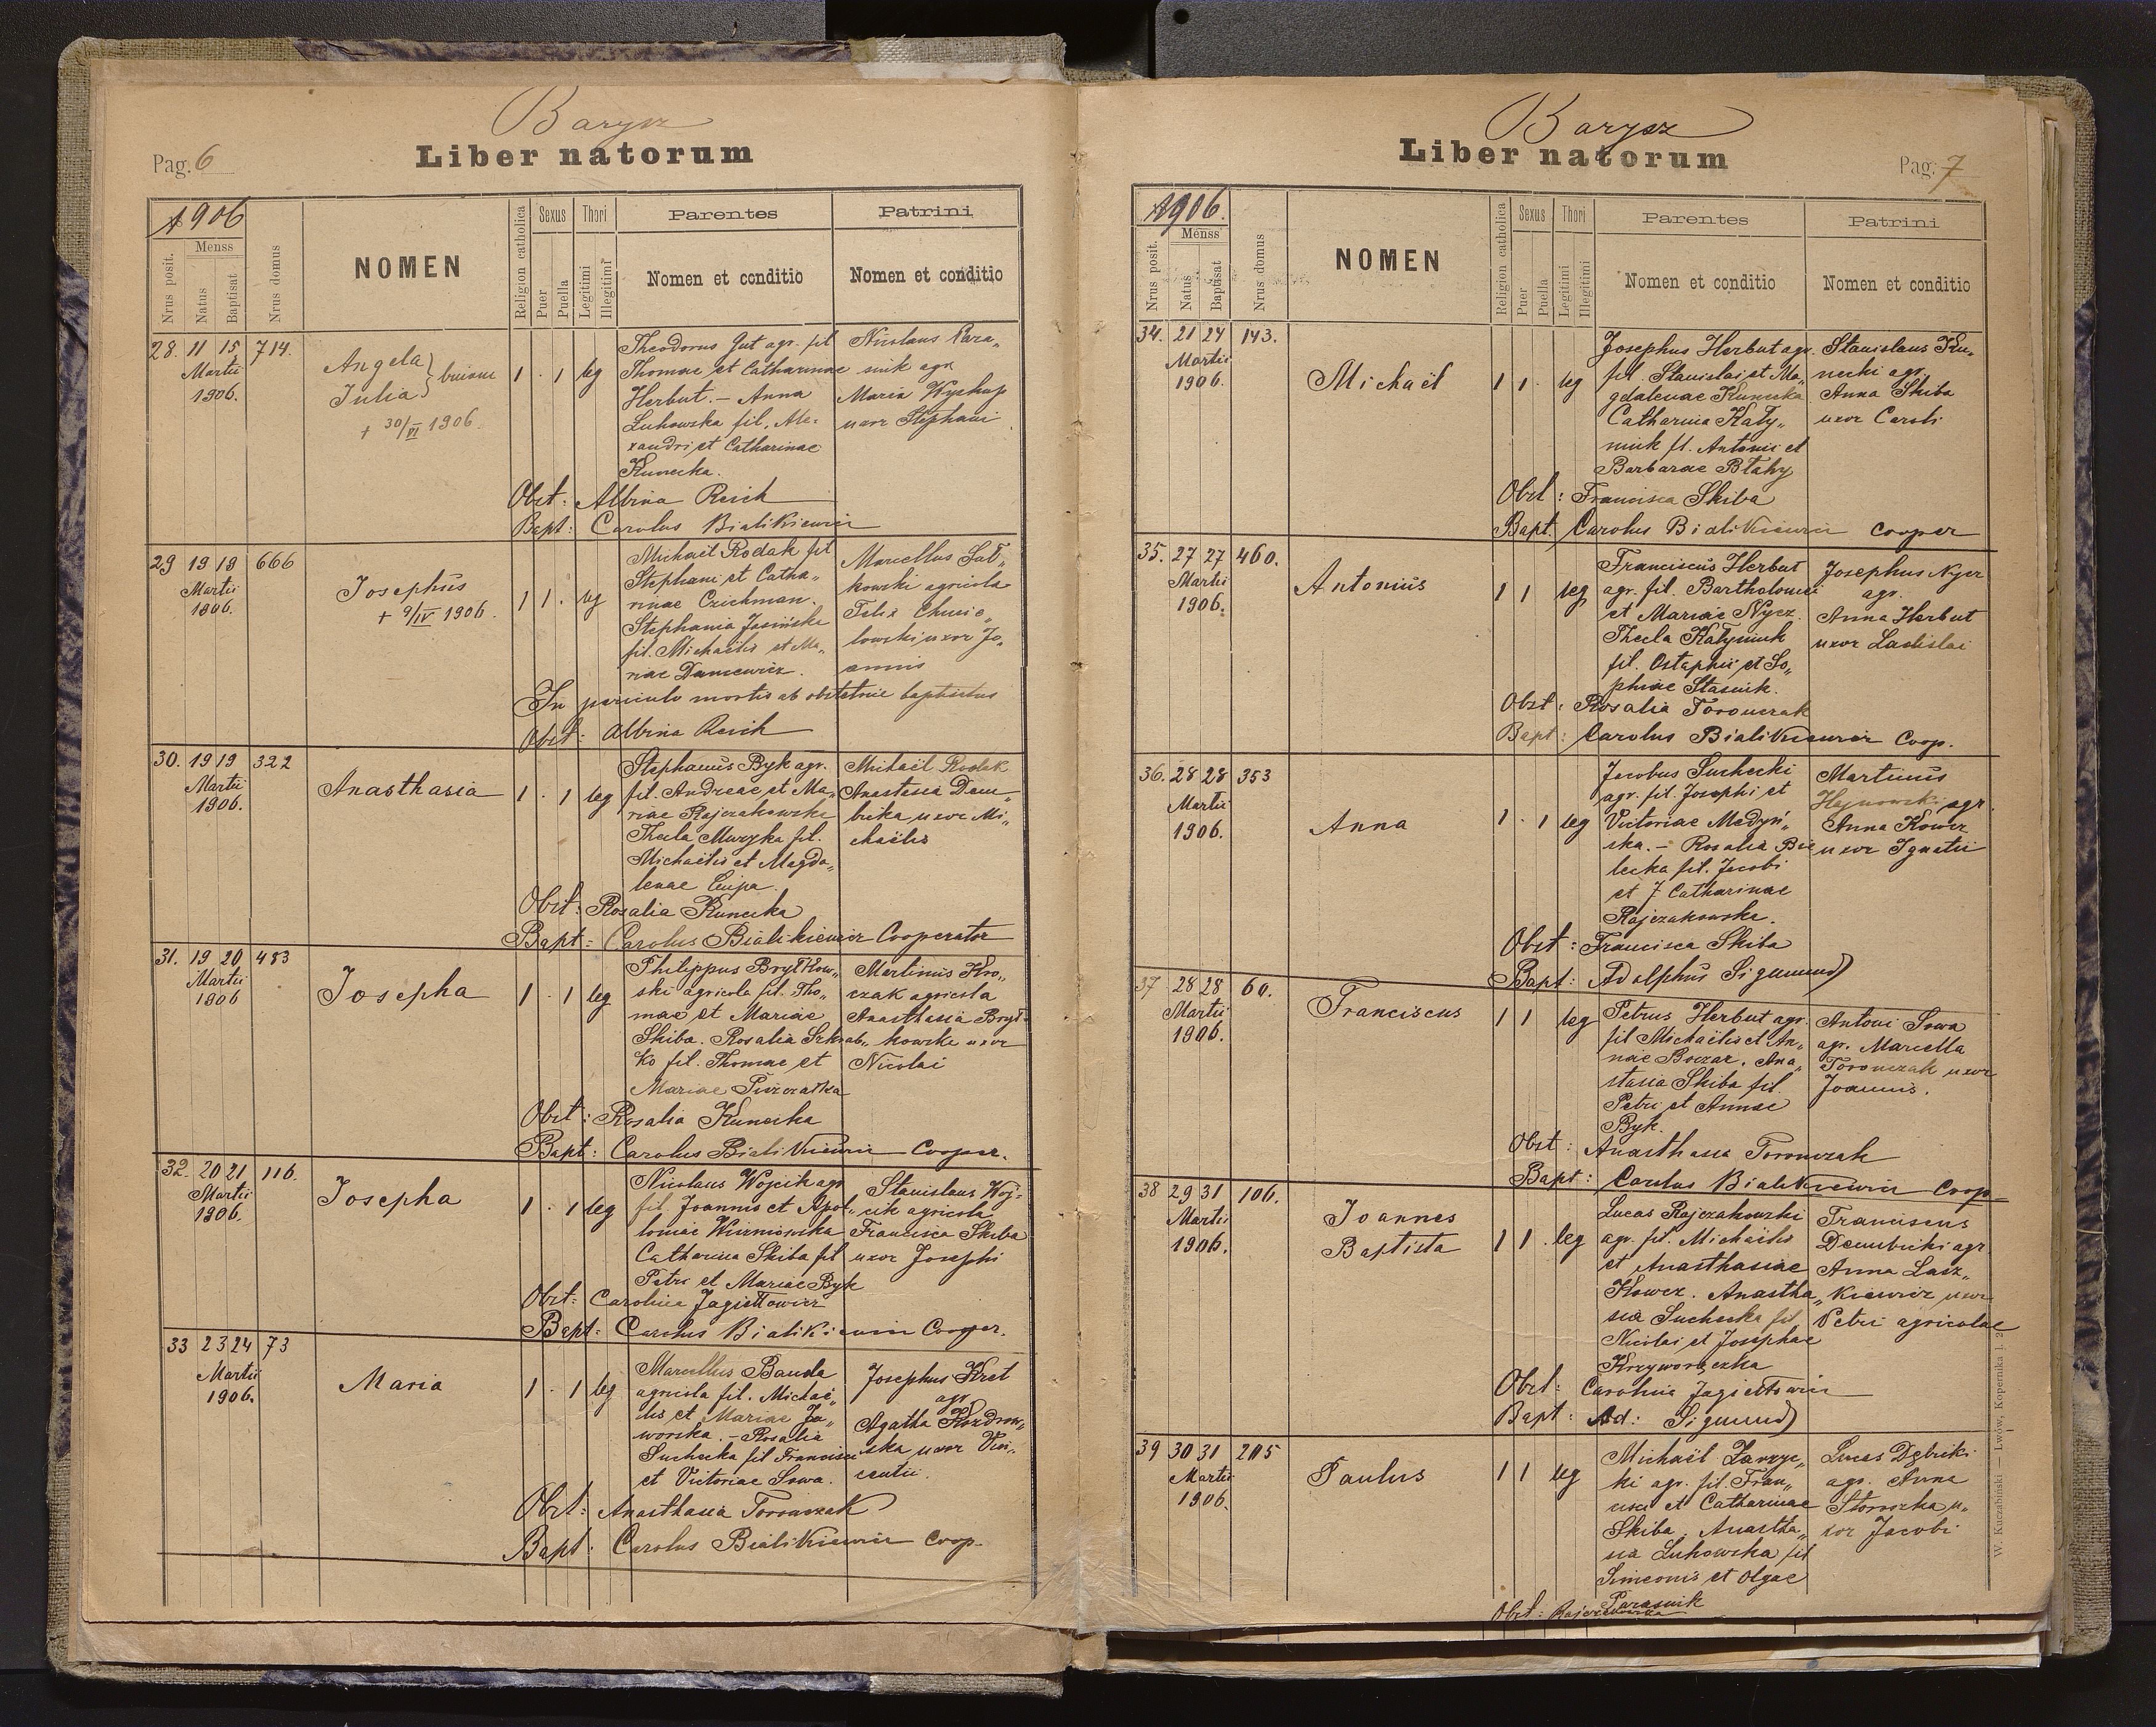 Barysz
Liber natorum
Pag. 6
1906
Nrus posit.
Menss
Natus
Baptisat
Nrus domus
NOMEN
Religion catholica
Sexus
Puer
Puella
Thori
Legitimi
Illegitimi
Parentes
Nomen et conditio
Patrini
Nomen et conditio
28. 11 15 714.
Martii
1906.
Angela
Julia
+ 30/VI 1906.
1 . 1 leg
Theodorus Gut agr. fil
Thomae et Catharinae
Herbut. – Anna
Luhowska fil. Ale-
xandri et Catharinae
Kunecka.
Nicolaus Para„
siuk agr.
Maria Wyskup
uxor Stephani
Obst: Albina Reich
Bapt: Carolus Bialikiewicz
29 19 19 666
Martii
1906.
Josephus
+ 9/IV 1906.
1 1 . leg
Michaël Rodak fil
Stephani et Catha„
rinae Czichman.
Stephania Jasińska
fil. Michaëlis et Ma„
riae Dancewicz.
Marcellus Sat„
kowski agricola
uxor Jo„
annis
In periculo mortis ab obstetrice baptisatus
Obst: Albina Reich
30. 19 19 322
Martii
1906.
Anasthasia
1 . 1 leg
Stephanus Byk agr.
fil. Andreae et Ma„
riae Rajczakowska
Thecla Muzyka fil.
Michaëlis et Magda„
lenae
Michaël Rodak
Anastasia Dem„
bicka uxor Mi„
chaëlis
Obst: Rosalia Kunecka
Bapt: Carolus Bialikiewicz Cooperator
31. 19 20 483
Martii
1906
Josepha
1 . 1 leg
Philippus Brytkow„
ski agricola fil. Tho„
mae et Mariae
Skiba. Rosalia Szkrab„
ko fil. Thomae et
Mariae
Martinus Kro„
czak agricola
Anasthasia Bryt„
kowska uxor
Nicolai
Obst: Rosalia Kunecka
Bapt: Carolus Bialikiewicz Cooper.
32. 20 21 116.
Martii
1906.
Josepha
1 . 1 leg
Nicolaus Wojcik agr
fil. Joannis et Apol„
loniae
Catharina Skiba fil
Petri et Mariae Byk
Stanislaus Woj„
cik agricola
Francisca Skiba
uxor Josephi
Obst: Carolina Jagiełłowicz
Bapt: Carolus Bialikiewicz Cooper.
33 23 24 73
Martii
1906.
Maria
1 . 1 leg
Marcellus Banda
agricola fil. Michaë„
lis et Mariae Ja„
worska. – Rosalia
Suchecka fil Francisci
et Victoriae Sowa.
Josephus Kret
agr
Agatha Kozdrow„
ska uxor Vin„
centii.
Obst: Anasthasia Toronczak
Bapt: Carolus Bialikiewicz Coop.
Barysz
Liber natorum
Pag. 7
1906.
Nrus posit.
Menss
Natus
Baptisat
Nrus domus
NOMEN
Religion catholica
Sexus
Puer
Puella
Thori
Legitimi
Illegitimi
Parentes
Nomen et conditio
Patrini
Nomen et conditio
34. 21 24 143.
Martii
1906.
Michaël
1 1 . leg
Josephus Herbut agr.
fil. Stanislai et Ma„
gdalenae Kunecka
Catharina Katy„
niuk fil. Antonii et
Barbarae Błahy
Stanislaus Ku„
necki agr.
Anna Skiba
uxor Caroli
Obst: Francisca Skiba
Bapt. Carolus Bialikiewicz Cooper
35. 27 27 460.
Martii
1906.
Antonius
1 1 leg
Franciscus Herbut
agr. fil. Bartholomei
et Mariae Nycz
Thecla Katyniuk
fil. Ostaphii et So„
phiae Stasiuk.
Josephus Nycz
agr.
Anna Herbut
uxor Ladislai
Obst: Rosalia Toronczak
Bapt: Carolus Bialikiewicz Coop.
36. 28 28 353
Martii
1906.
Anna
1 . 1 leg
Jacobus Suchecki
agr. fil. Josephi et
Victoriae Medyń„
ska. – Rosalia Bie
lecka fil. Jacobi
et Catharinae
Rajczakowska.
Martinus
Hajnowski agr.
Anna Kowcz
uxor Ignatii
Obst: Francisca Skiba
Bapt: Adolphus Sigmund
37 28 28 60.
Martii
1906.
Franciscus
1 1 leg
Petrus Herbut agr.
fil Michaëlis et An„
nae Boczar. Ana„
stasia Skiba fil.
Petri et Annae
Byk.
Antoni Sowa
ag. Marcella
Toronczak uxor
Joannis.
Obst: Anasthasia Toronczak
Bapt: Carolus Bialikiewicz Coop
38 29 31 106.
Martii
1906.
Joannes
Baptista
1 1 . leg
Lucas Rajczakowski
agr. fil. Michaëlis
et Anasthasiae
Kowcz. Anastha„
sia Suchecka fil.
Nicolai et Josephae
Krzyworączka
Franciscus
Dembicki agr
Anna Lasz„
kiewicz uxor
Petri agricolae
Obst: Carolina Jagiełłowicz
Bapt: Ad: Sigmund
39 30 31 205
Martii
1906.
Paulus
1 1 leg
Michaël Zarzyc„
ki agr. fil. Fran„
cisci et Catharinae
Skiba. Anastha„
sia Luhowska fil
Simeonis et Olgae
Parasiuk
Lucas Dębicki
agr. Anna
Storozka u„
xor Jacobi
Obst: Rajczakowska
W. Kuczabiński — Lwów, Kopernika l. 2